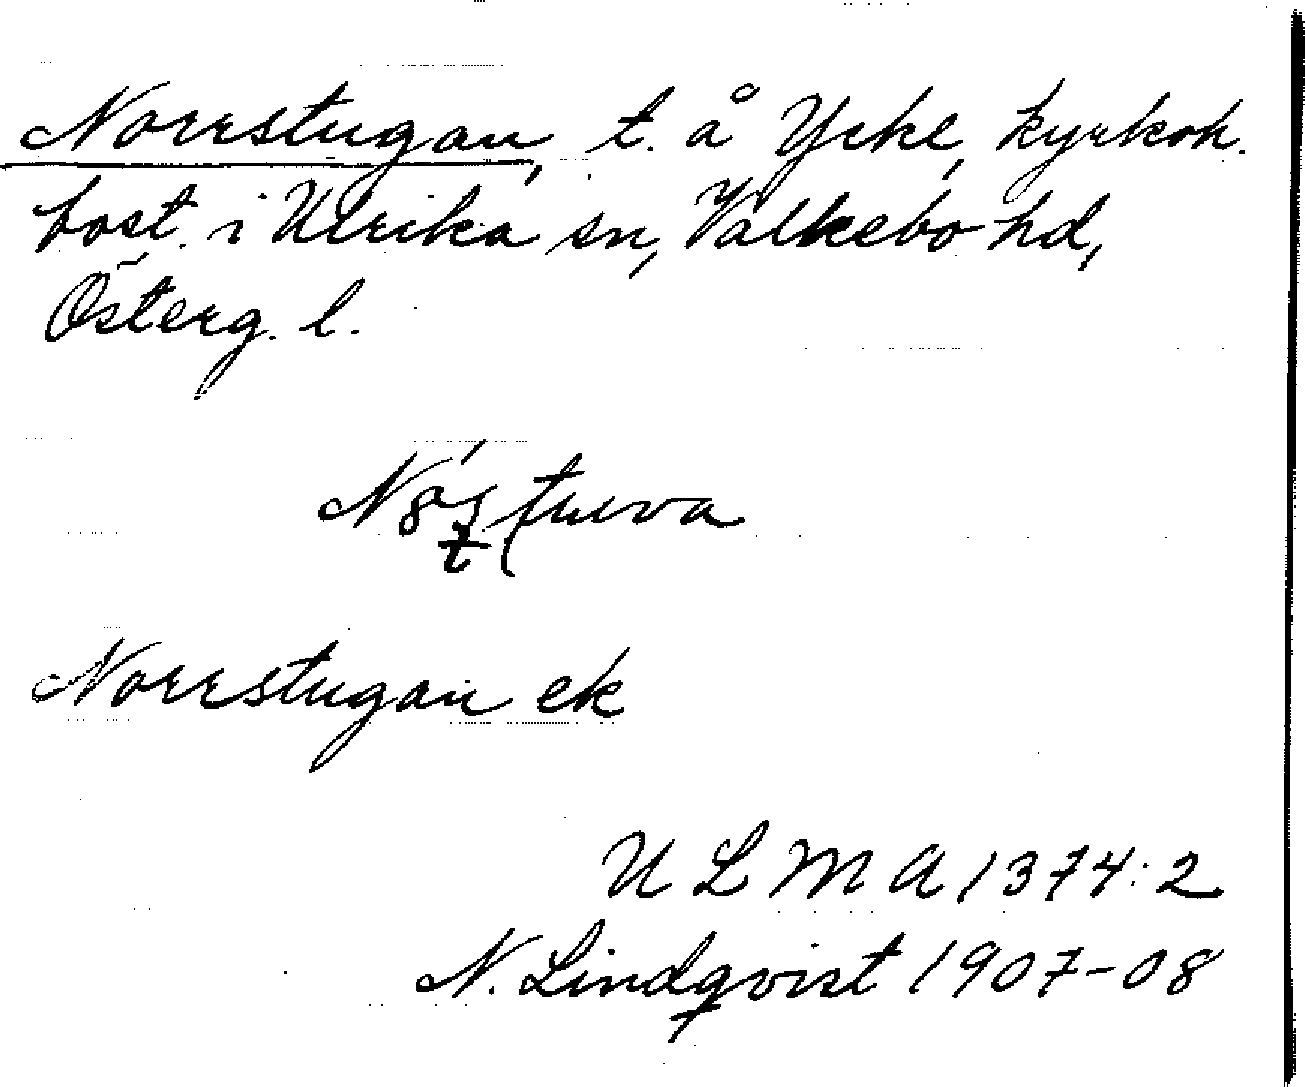 Norrstugan, t. å Ycke, kyrkoh.
bost. i Ulrika sn, Valkebo hd,
Österg. l.
Norrstugan ek
U L M A 1374:2
N. Lindqvist 1907-08